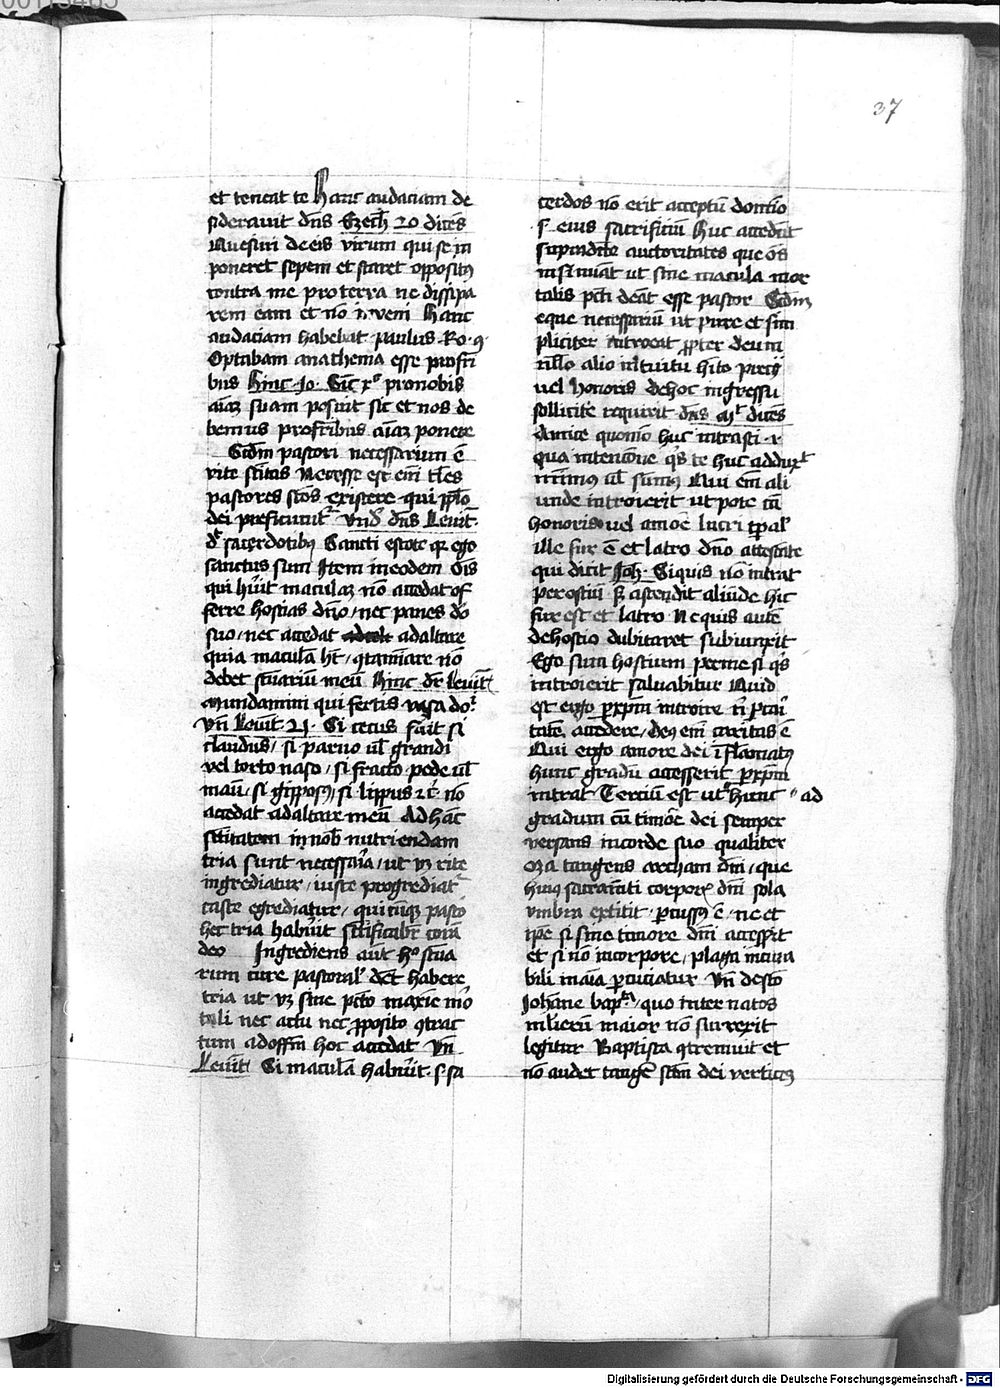 37
et teneat te Hanc audaciam de
siderauit dns Ezech 20 dices
Quesiui de eis virum qui se in
poneret sepem et staret oppositus
contra me pro terra ne dissipa
rem eam et no inveni Hanc
audaciam habebat paulus Ro 9
Optabam anathema esse pro fri
bus Hinc Jo. Sic xps pro nobis
aiam suam posuit sic et nos de
bemus pro fribus aias ponere
Scdm pastori necessarium e
vite scitas Necesse est em tles
pastores scos existere qui pplo
dei preficiunt Vnd dns Leuit
de sacerdotibus Sancti estote qr ego
sanctus sum Item in eodem Ois
qui huit maculam no accedat of
ferre hostias dno / nec panes do
suo / nec accedat ad altare
quia maculam ht / gtaminare no
debet scuariu meu Hinc dr Leuit
mundamini qui fertis vasa do
Vn Leuit 21. Si cecus fuit si
claudus / si paruo ul grandi
vel torto naso / si fracto pede ul
manu / si gipposus / si lippus no
accedat ad altare meu Ad hac
scitatem in nob nutriendam
tria sunt necessaria / ut vz rite
ingrediatur / iuste progrediat
caste egrediatur / quicuq pasto
hec tria habuit scificabr cora
deo Ingrediens aut
rum cure pastoral debet habere
tria ut vz sine pcto maxie mo
tali nec actu nec pposito gtrac
tum ad offm hoc accedat Vn
Leuit Si macula habuit s sa
cerdos no erit acceptu domio
s eius sacrificiu Huc accedut
auctoritates que os
insinuat ut sine macula mor
talis pcti deat esse pastor Scdm
eque necessariu ut pure et sim
pliciter introeat ppter deum
nllo alio intuitu hito
uel honoris de hoc ingressu
sollicite requirit dns Mt dices
Amice quomo huc intrasti
qua intencoe qs te huc adduxt
Qui em ali
unde introierit ut pote cu
honoris uel amoe lucri tpal
ille fur e et latro dno attestate
qui dicit Joh Siquis no intrat
per ostiu s ascendit aliude hic
fur est et latro Nequis aute
de hostio dubitaret subiunxit
Ego sum hostium per me si qs
introierit saluabitur Quid
est ergo per xpm introire
tate accedere / deus em caritas e
Qui ergo amore dei inflamatus
hunc gradu accesserit per xpm
intrat Terciu est ut hunc ad
gradum cu timoe dei semper
versans in corde suo qualiter
oza tangens archam dni / que
huius sacrameti corporis dni sola
vmbra extitit pcussus e / ne et
ipe si sine timore dni accesserit
et si no in corpore / plaga incura
bili in aia pcuciatur Vn de sco
Johanne bapta / quo inter natos
mulieru maior no surrexit
legitur Baptista gtremuit et
no audet tange scm dei verticem
Digitalisierung gefördert durch die Deutsche Forschungsgemeinschaft - DFG